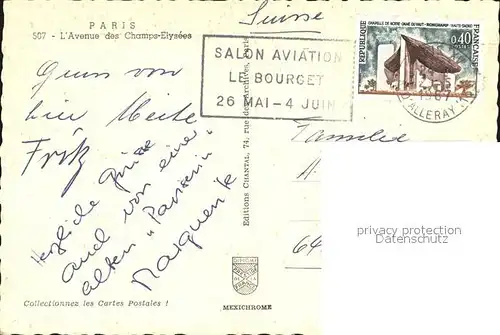 PARIS
507 - L'Avenue des Champs-Elysées
Suisse
SALON AVIATION
LE BOURGET
26 MAI - 4 JUIN
CHAPELLE DE NOTRE-DAME DU HAUT - RONCHAMP (HAUTE-SAÔNE)
0,40
POSTES
REPUBLIQUE FRANÇAISE
1967
D'ALLERAY
von
hier
Fritz
Herzliche Grüsse
auch von einer
alten "Pariserin"
Marguerite
Editions CHANTAL, 74, rue des Archives, Paris
Familie
H.
64
privacy protection
Datenschutz
Collectionnez les Cartes Postales !
MEXICHROME